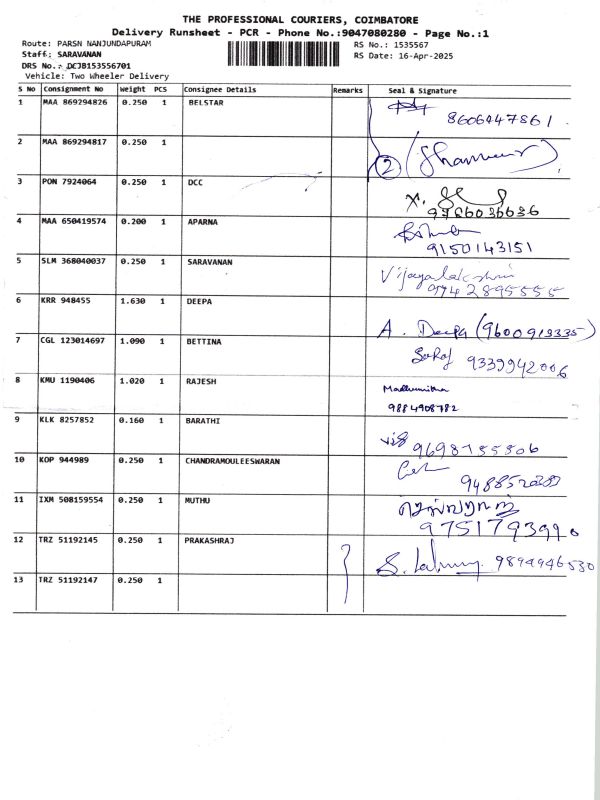 THE PROFESSIONAL COURIERS, COIMBATORE
Delivery Runsheet - PCR - Phone No.:9047080280 - Page No.:1
Route: PARSN NANJUNDAPURAM RS No.: 1535567
Staff: SARAVANAN RS Date: 16-Apr-2025
DRS No.: DCJB153556701
Vehicle: Two Wheeler Delivery
S No Consignment No Weight PCS Consignee Details Remarks Seal & Signature
1 MAA 869294826 0.250 1 BELSTAR
8606447861
2 MAA 869294817 0.250 1
2
3 PON 7924064 0.250 1 DCC
9786036636
4 MAA 650419574 0.200 1 APARNA
9150143151
5 SLM 368040037 0.250 1 SARAVANAN Vijayalakshmi
9742895555
6 KRR 948455 1.630 1 DEEPA
A. Deepa (9600913335)
7 CGL 123014697 1.090 1 BETTINA
Saraj 9339942006
8 KMU 1190406 1.020 1 RAJESH Madhumitha
9884908782
9 KLK 8257852 0.160 1 BARATHI
9698755506
10 KOP 944989 0.250 1 CHANDRAMOULEESWARAN
11 IXM 508159554 0.250 1 MUTHU
9751793990
12 TRZ 51192145 0.250 1 PRAKASHRAJ
9894946530
13 TRZ 51192147 0.250 1